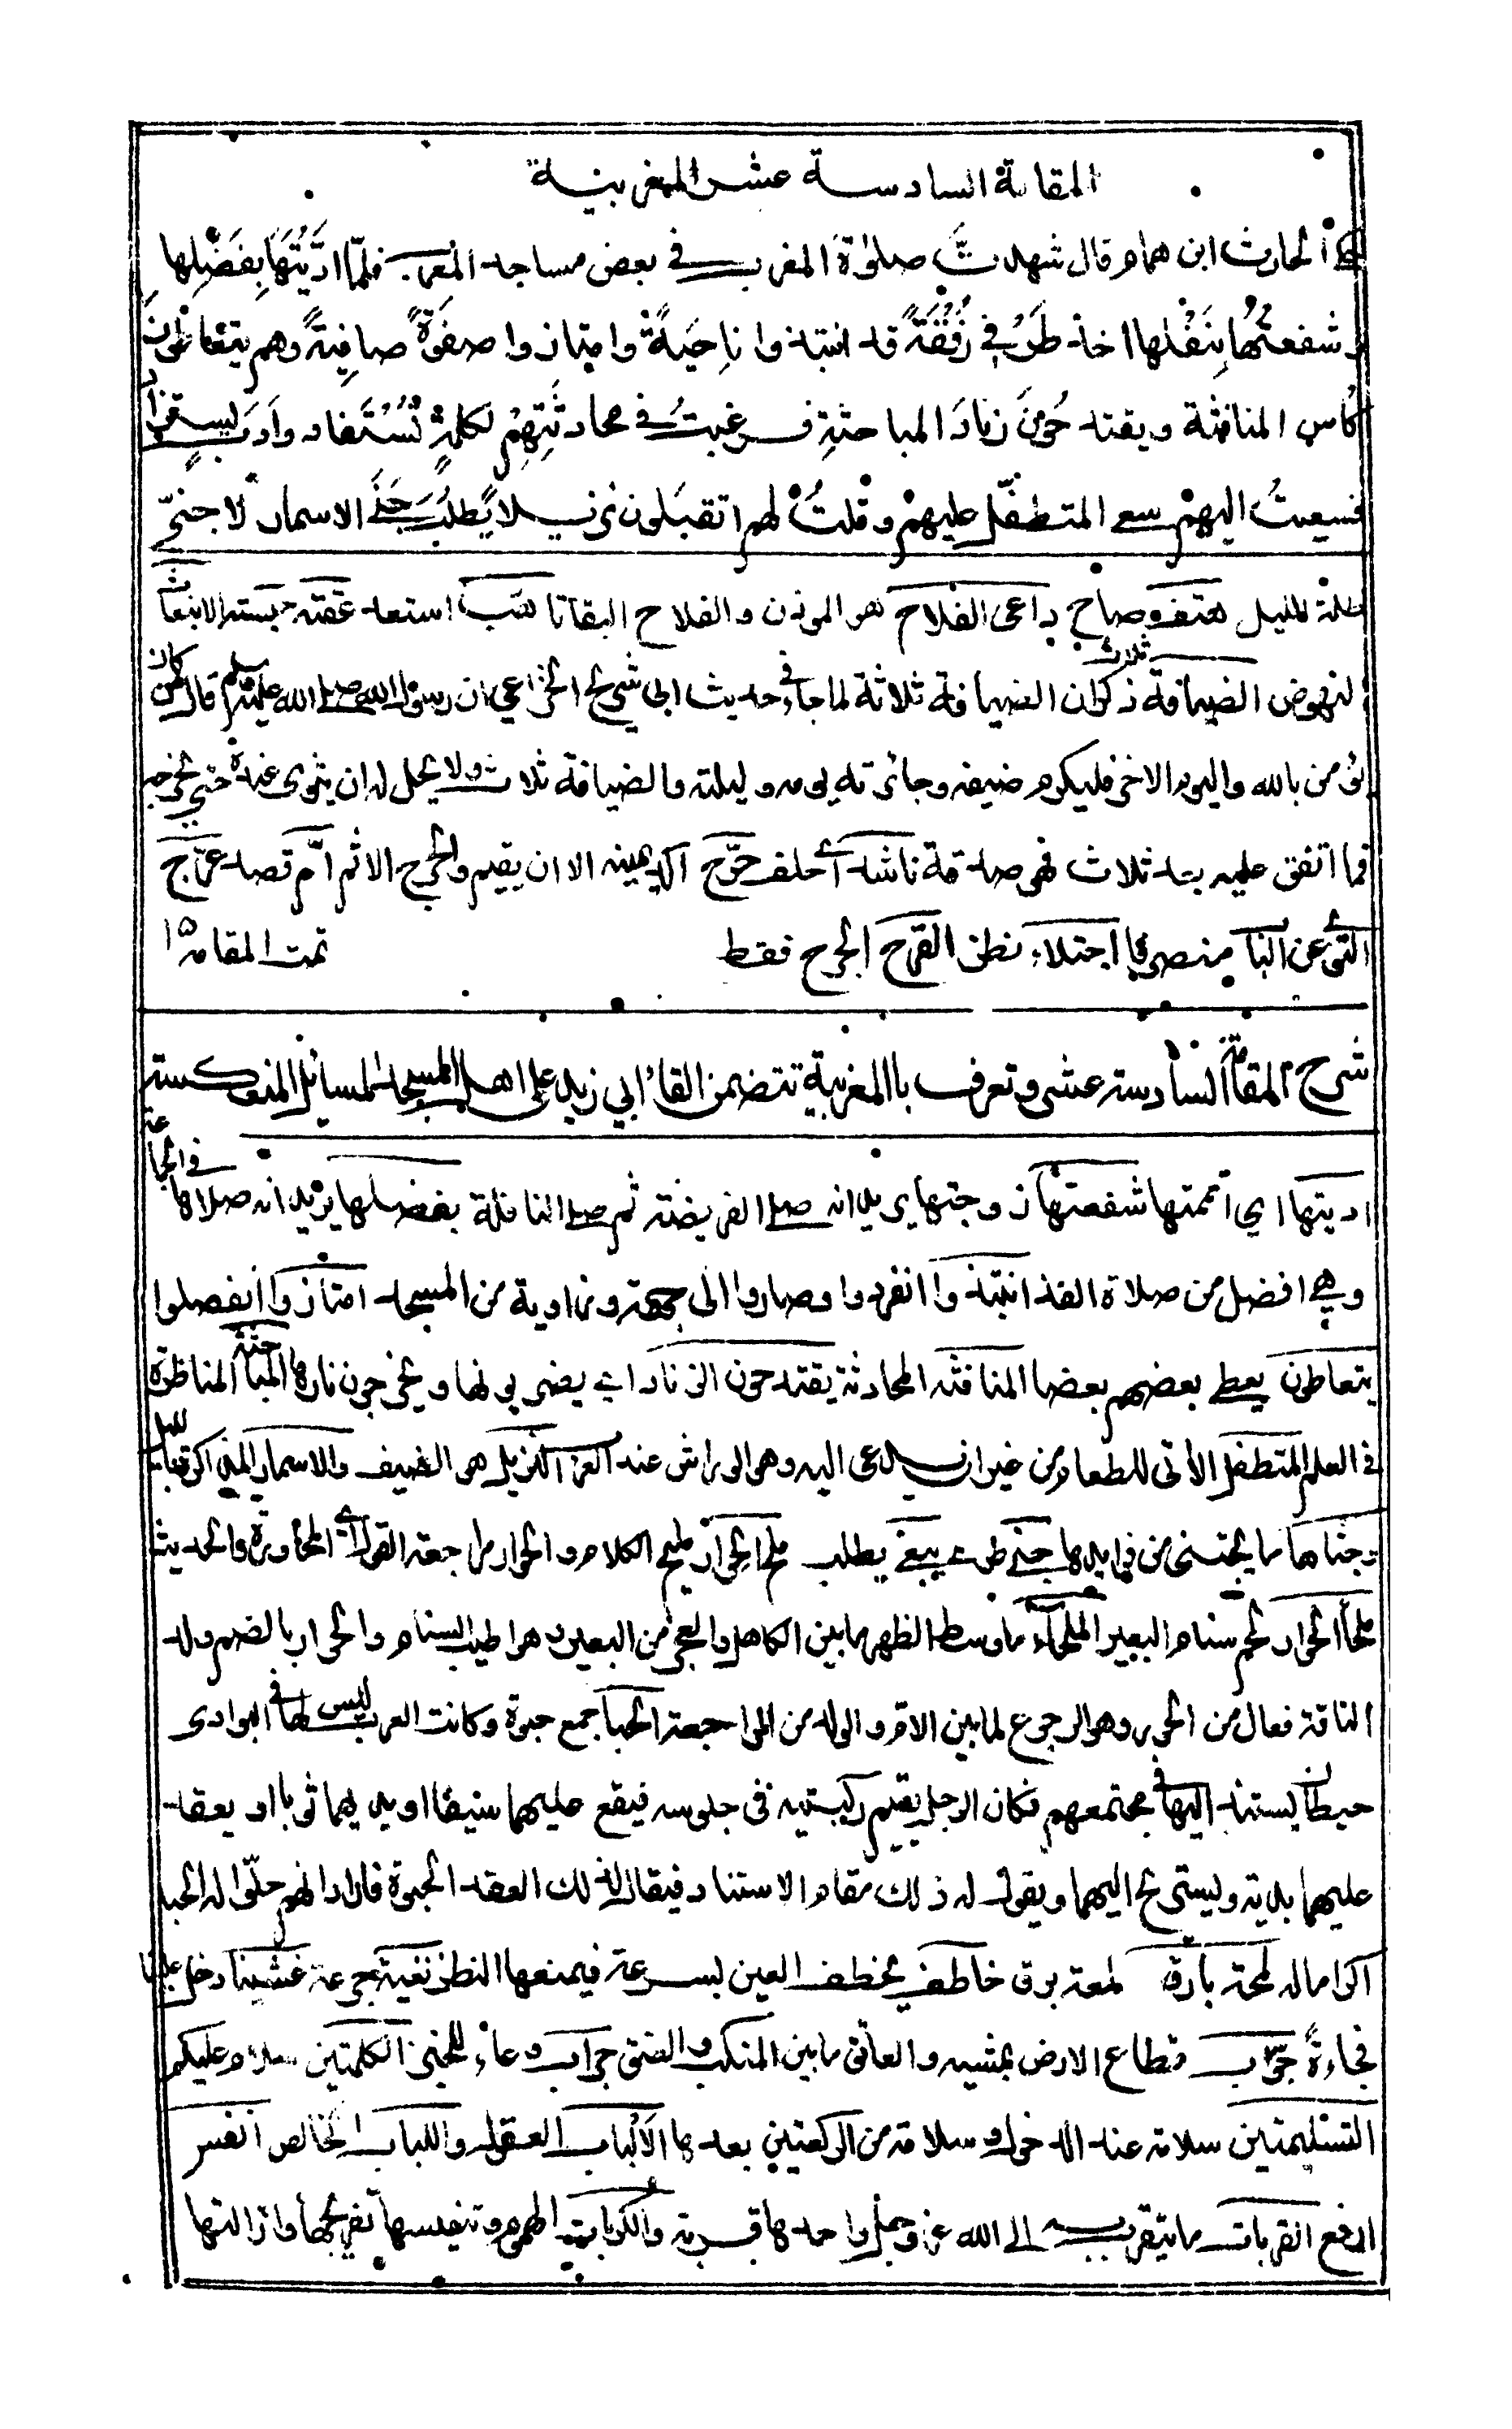 المقامة السادسة عشر المغربية
حكى الحارث ابن همام قال شهدت صلوة المغرب في بعض مساجد المغرب فلمّا ادّيْتُهَا بِفَضْلِها
و شفعتُها بِنَفْلها اخذ طَرْفي رُفْقَةٌ قد انتبذوا ناحِيَةً وامتازوا صفوَةً صافِيَةً وهم يتعاطَونَ
كأس المنافثة ويقتدحُونَ زنادَ المباحثةِ فرغبتُ في محادثَتِهِمْ لكلمةٍ تُسْتَفاد وادَبٍ يستزاد
فسعيتُ اليهمْ سعي المتطفّل عليهمْ وقلتُ لهم اتقبَلون نزيلا يَطلُبُ جَنَى الاسمار لا جنيّ
هتف صاح بداعي الفلاح هو الموذن والفلاح البقا تاهّب استعد عقته حبسته الانبعاث
النهوض الضيافة ثلاث ذكر ان الضيافة ثلاثة لما جاء في حديث ابي شريح الخزاعي ان رسول الله صلى الله عليه وسلم قال من كان
يؤمن بالله واليوم الاخر فليكرم ضيفه وجائزته يومه وليلته والضيافة ثلاث ولا يحل له ان يثوى عنده حتى يحرجه
فما انفق عليه بعد ثلاث فهو صدقة ناشد اى حلف حرّج اكد يمينه الا ان يقيم والحرج الاثم امّ قصد عرّاج
اجتلاء نظر القرح الجرح فقط تمت المقامه ١٥
شرح المقامة السادسة عشر وتعرف باالمغربية تتضمن القاء ابي زيد على اهل المسجد المسائل المنعكسة
اديتها اي اتممتها شفعتها زوجتها يريد انه صلى الفريضة ثم صلى النافلة بفضلها يريد انه صلاها في الجماعة
وهي افضل من صلاة الفذ انتبذوا انفردوا وصاروا الى جهة وزاوية من المسجد امتازوا انفصلوا
يتعاطون يعطي بعضهم بعضا المنافثه المحادثة يقتدحون الزناد اي يضربونها ويخرجون نارها المباحثة المناظرة
في العلم المتطفل الأتى للطعام من غير ان يدعى اليه وهو الوراش عند العرب النزيل هو الضيف والاسمار
وجناها ما يجتنى من فوايدها جنى طرى يبغي يطلب ملح الحوار مليح الكلام والحوار مراجعة القول اي المحاورة والحديث
ملحأ الحوار لحم سنام البعير الملحاء ما وسط الظهر ما بين الكاهل والعجز من البعير وهو اطيب السنام والحوار بالضم ولد
الناقة فعال من الحور وهو الرجوع لما بين الام والولد من المراجعة الحبا جمع حبوة وكانت العرب ليس لها في البوادى
حيطان يستند اليها في مجتمعهم فكان الرجل يقيم ركبتيه في جلوسه فيقع عليهما سيفا او يديهما ثوبا او يعقد
عليهما يديه وليستريح اليهما ويقوم له ذلك مقام الاستناد فيقال لذلك العقد الحبوة فارادانهم حلّوا له الحبا
اكراما له لمحة بارق لمعة برق خاطف يخطف العين بسرعة فيمنعها النظر نغبة جرعة غشينا دخل علينا
فجاءةً جوّاب قطاع الارض بمشيه والعاتق ما بين المنكب والعنق جراب وعاء للخبز الكلمتين سلام عليكم
التسليمتين سلامه عند الدخول وسلامه من الركعتين بعدها الألباب العقول واللباب الخالص انفس
ارفع القربات ما يتقرب به الى الله عز وجل واحدها قربة والكربات الهموم وتنفيسها تفريجها وازالتها